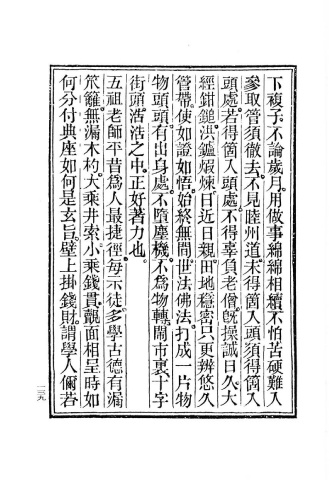 下複子。不論歲月。用做事綿綿相續。不怕苦硬難入
參取管須徹去。不見睦州道。未得箇入頭。須得箇入
頭處。若得箇入頭處。不得辜負老僧。旣操誠日久。大
經鉗鎚洪鑪煅煉。日近日親。田地穩密。只更辨悠久
管帶。使如證如悟。始終無間。世法佛法。打成一片。物
物頭頭有出身處。不墮塵機。不爲物轉。鬧市裏十字
街頭浩浩之中。正好著力也。
五祖老師平昔爲人最捷徑。每示徒。多學古德有漏
笊籬無漏木杓。大乘井索小乘錢貫。覿面相呈時如
何。分付典座。如何是玄旨。壁上掛錢財。謂學人儞若
一三九